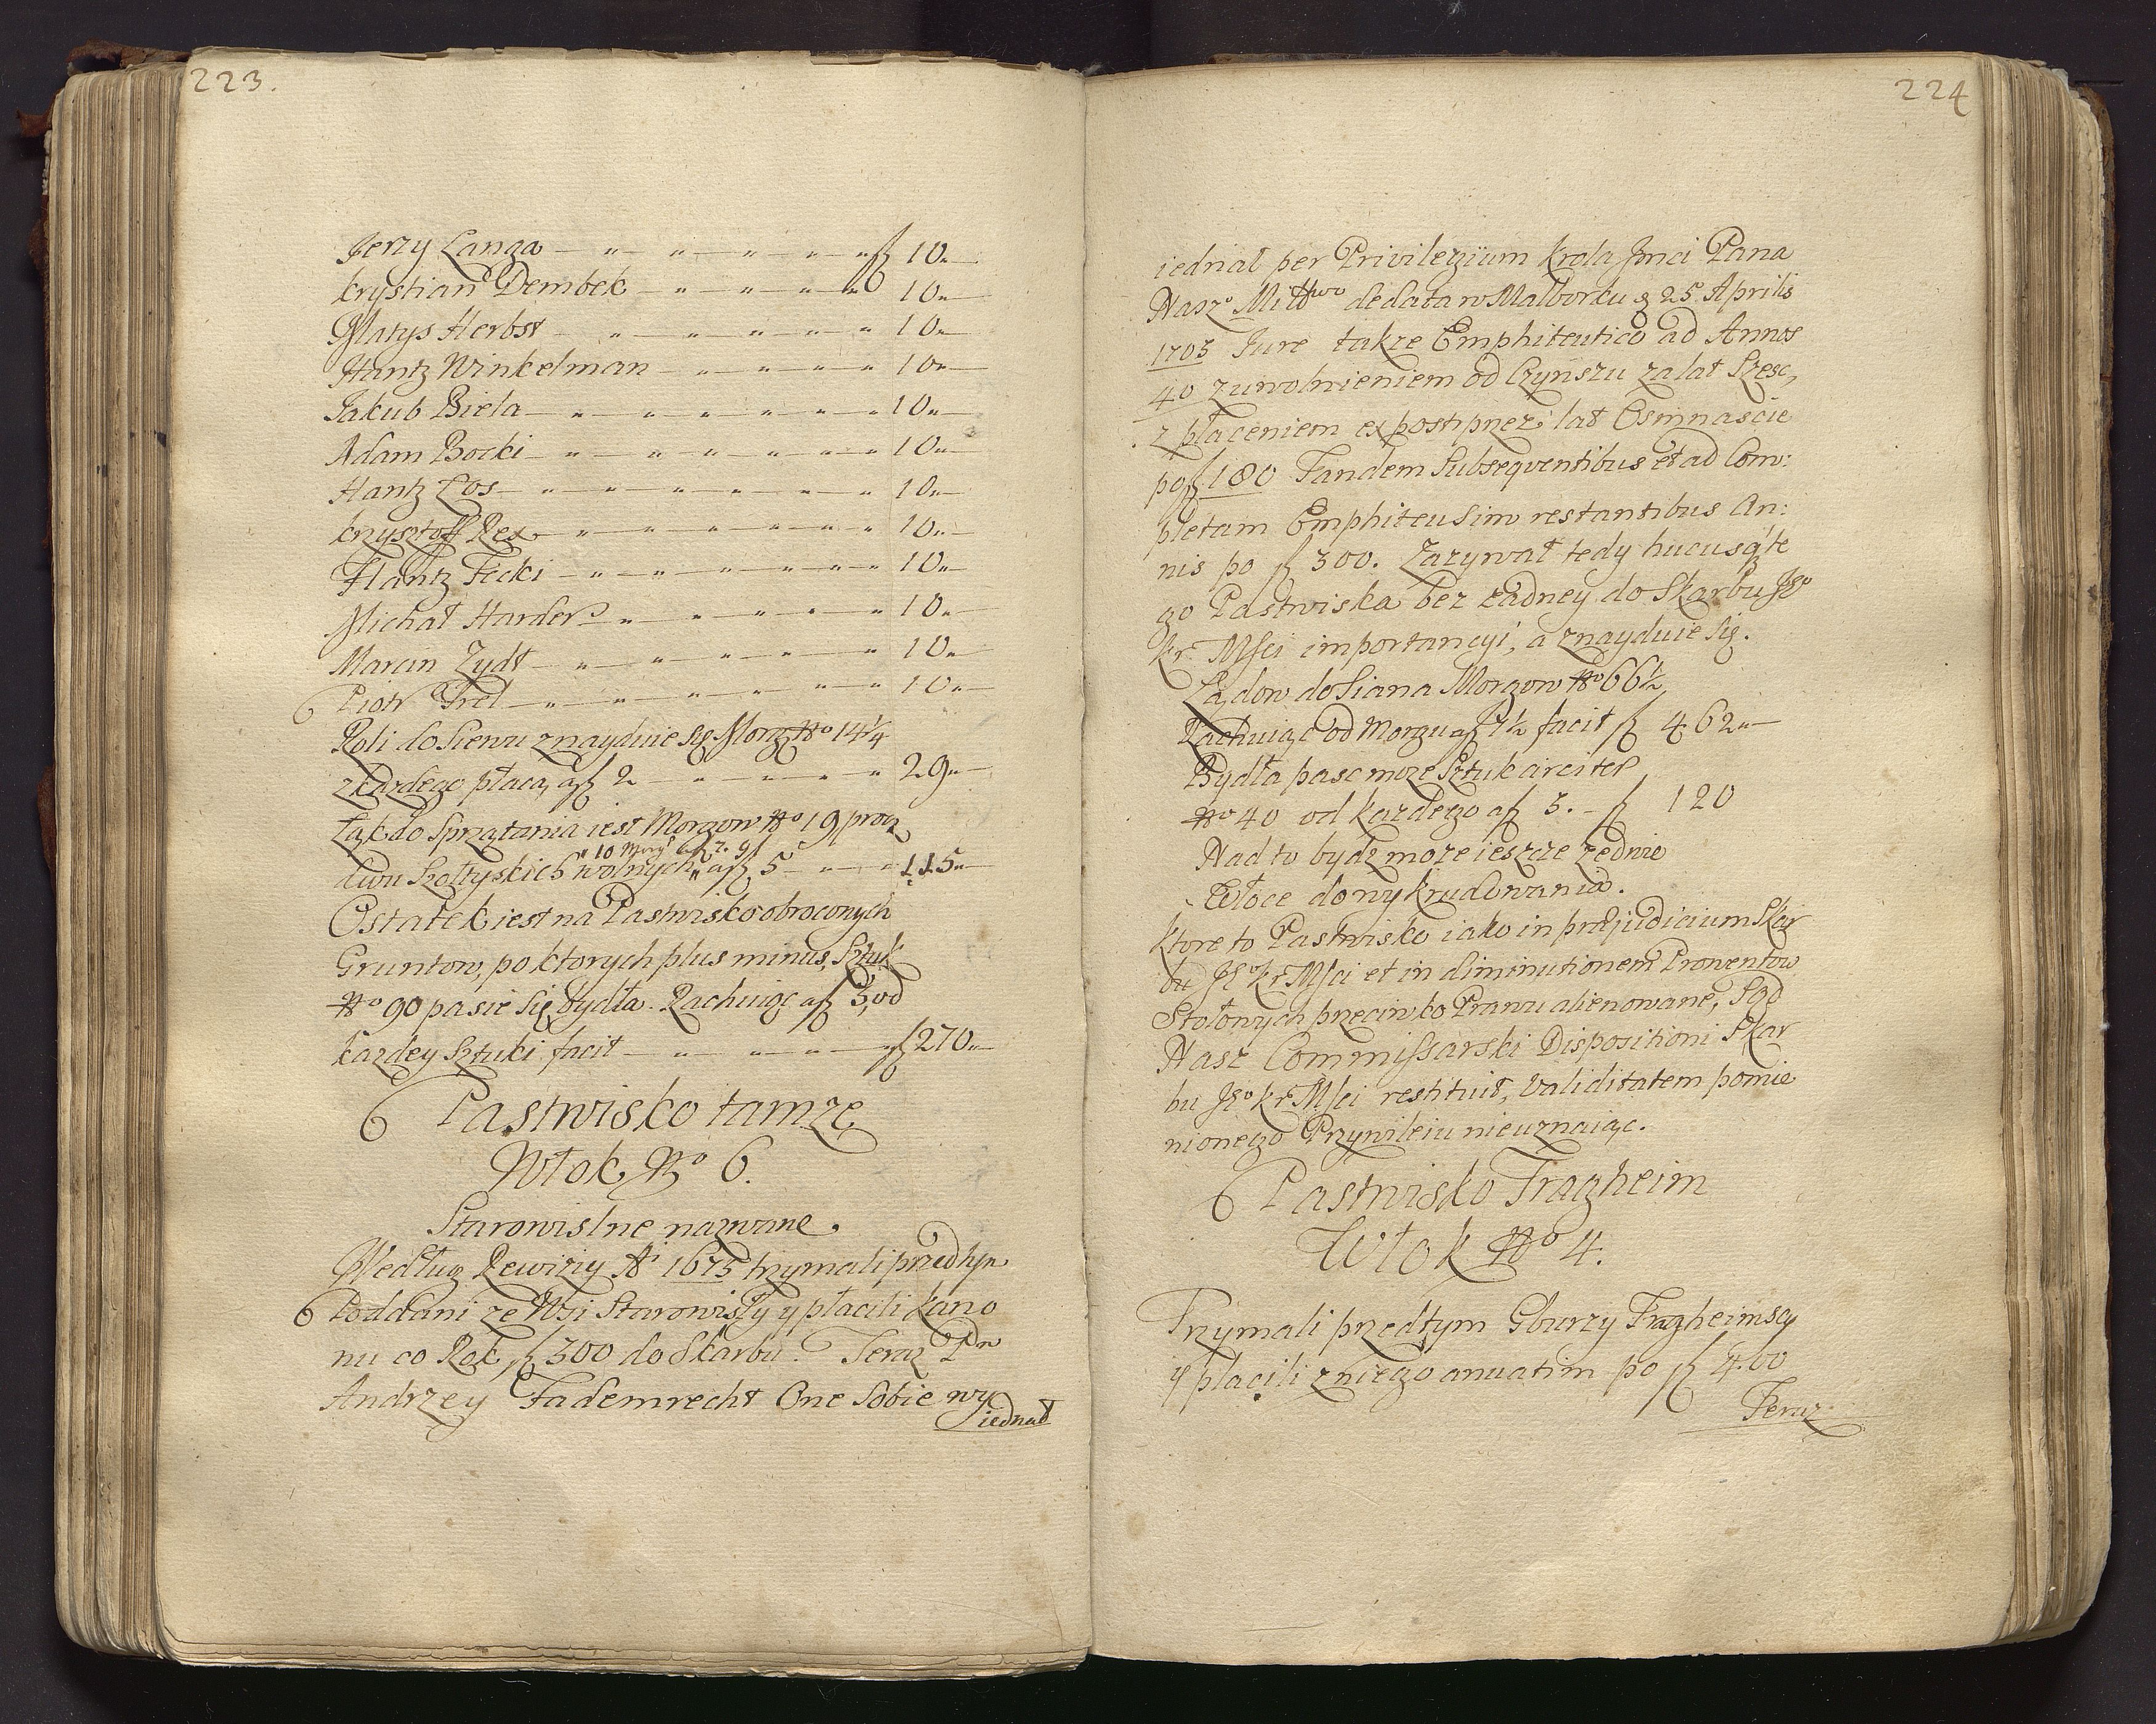 223.
Jerzy Langa — „ — „ — „ — „ — f 10„—
krystian Dembek — „ — „ — „ 10„—
Matys Herbst — „ — „ — „ — „ — „ 10„—
Hantz Winkelman — „ — „ — „ — „ 10„—
Jakub Biela — „ — „ — „ — „ — „ 10„—
Adam Bocki — „ — „ — „ — „ — „ 10„—
Hantz Los — „ — „ — „ — „ — „ 10„—
krzysztoff Rex „ — „ — „ — „ — „ 10„—
Hantz Fecki — „ — „ — „ — „ — „ 10„—
Michał Harder „ — „ — „ — „ — „ 10„—
Marcin Zydt — „ — „ — „ — „ — „ 10„—
Piotr Frel — „ — „ — „ — „ — „ 10„—
Roli do Siewu znayduie się Morg No 14¼
z kazdego płacą af 2 — „ — „ — „ 29„—
Łąk do Sprzątania iest Morgow No 19 procz
„ 10 Morg
dwu Szołtyskich wolnych„ af 5 — „ — „ 115„—
Ostatek iest na Pastwisko obroconych
Gruntow, po ktorych plus minus, Sztuk
No 90 pasie się bydła. Rachuiąc af 3, od
kazdey Sztuki facit — „ — „ — „ f 270„—
Pastwisko tamze
Włok No 6.
Starowislne nazwane.
Według Rewizyy Ai 1675 trzymali przedtym
Poddani ze Wsi Starowisły y płacili kano
nu co Rok f 300 do Skarbu. Teraz Pn
Andrzey Fademrecht One Sobie wy
iednał
224
iednał per Privilegiium krola Jmci Pana
Naszo Miłłwo de data w Malborku d 25 Aprilis
1703 Jure takze Emphiteutico ad Annos
40 z uwolnieniem od Czynszu za lat Szesc,
z płaceniem ex post przez lat Osmnascie
po f 180 Tandem Subseqventibus et ad Com:
pletam Emphiteusim restantibus An:
nis po f 300. Zazywał tedy hucusq te
go Pastwiska bez zadney do Skarbu JKo
kr Msci importancyi, a znayduie się.
Lądow do Siana Morgow No 66½
Rachuiąc od Morgu af 7½ facit f 462„—
Bydła pasc moze Sztuk circiter
No 40 od kazdego af 3. — f 120
Nad to bydz moze ieszcze ze dwie
Włoce do wykrudowania.
ktore to Pastwisko iako in præjudicium Skar
bu JKo kr Msci et in diminutionem Prowentow
Stołowych przeciwko Prawu alienowane, Sąd
Nasz Commissarski Dispositioni Skar
bu JKo kr Msci restituit, validitatem pomie
nionego Przywileiu nieuznaiąc.
Pastwisko Fragheim
Włok No 4.
Trzymali przedtym Gburzy Fragheimscy
y płacili z niego anuatim po f 400
Teraz